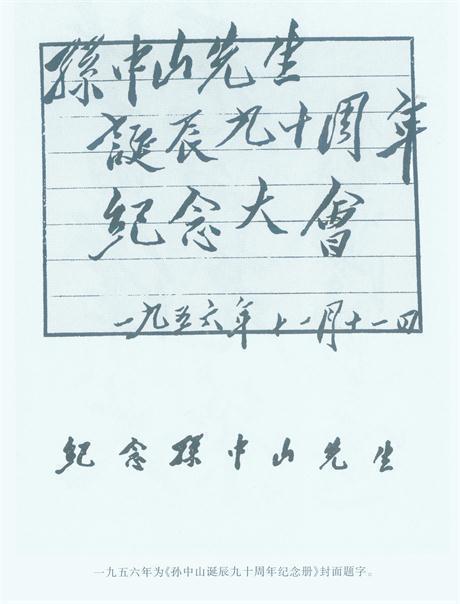 孫中山先生
誕辰九十周年
紀念大會
一九五六年十一月十一日
紀念孫中山先生
一九五六年为《孙中山诞辰九十周年纪念册》封面题字。